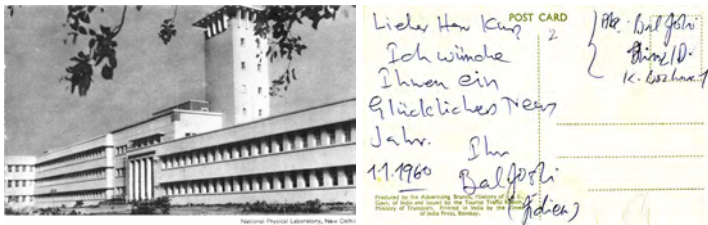 National Physical Laboratory, New Delhi
POST CARD
2
Lieber Herr
Ich wünche
Ihnen ein
Glückliches Neus
Jahr.
Ihr
1.1.1960 Bal Joshi
(Indien)
Bal Joshi
Produced by the Advertising Branch, Ministry of
Govt. of India and issued by the Tourist Traffic
Ministry of Transport. Printed in India by the Times
of India Press, Bombay.